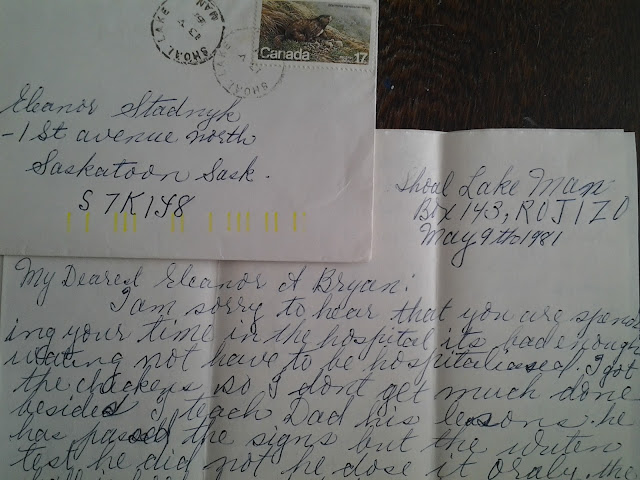 SHOAL LAKE
MAN
SHOAL LAKE
Canada 17
Eleanor Stadnyk
-1 St avenue north
Saskatoon Sask.
S7K1Y8
Shoal Lake Man
Box 143, R0J1Z0
May 9th 1981
My Dearest Eleanor & Bryan:
I am sorry to hear that you are spend
ing your time in the hospital its bad enough
waiting not have to be hospitalised. I got
the chickens so I dont get much done
besides I teach Dad his lessons. he
has passed the signs but the writen
test he did not he dose it oraly. the